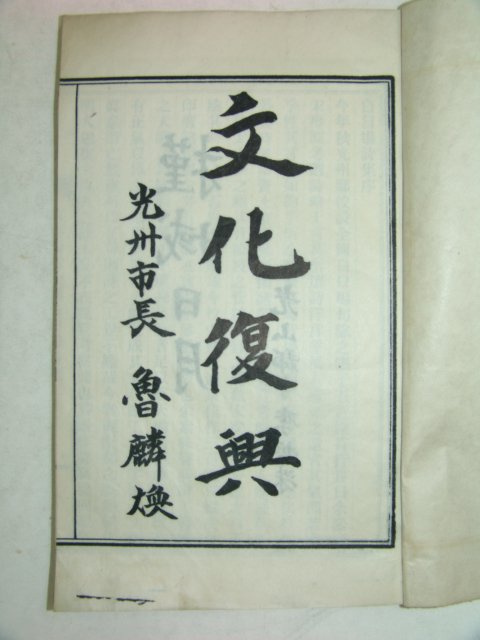 文化復興
光州市長 魯麟煥